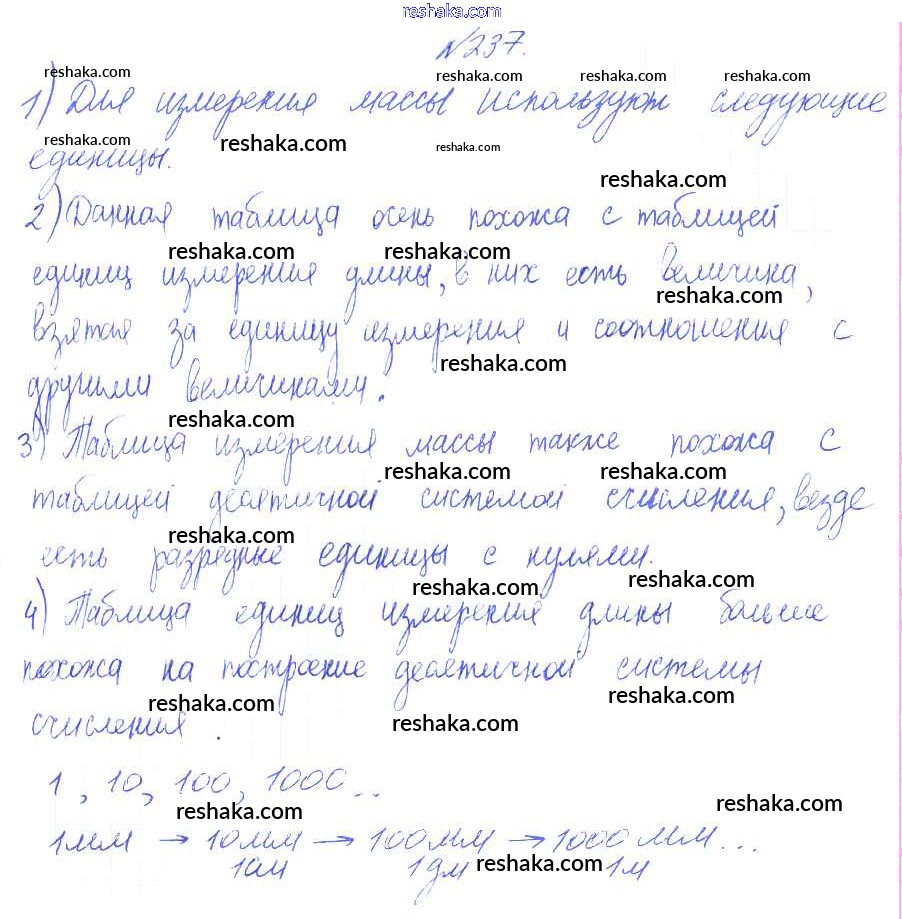 reshaka.com
№237.
reshaka.com reshaka.com reshaka.com reshaka.com
1) Для измерения массы используют следующие
reshaka.com reshaka.com reshaka.com
единицы.
reshaka.com
2) Данная таблица осень похожа с таблицей
reshaka.com reshaka.com
единиц измерения длины, в них есть величина,
reshaka.com
взятая за единицу измерения и соотношения с
reshaka.com
другими величинами.
reshaka.com
3) Таблица измерения массы также похожа с
reshaka.com reshaka.com
таблицей десятичной системой счисления, везде
reshaka.com
есть разрядные единицы с нулями.
reshaka.com reshaka.com
4) Таблица единиц измерения длины больше
похожа на построение десятичной системы
reshaka.com reshaka.com reshaka.com
счисления.
1, 10, 100, 1000...
reshaka.com reshaka.com
1мм → 10мм → 100мм → 1000мм...
1см 1дм reshaka.com 1м